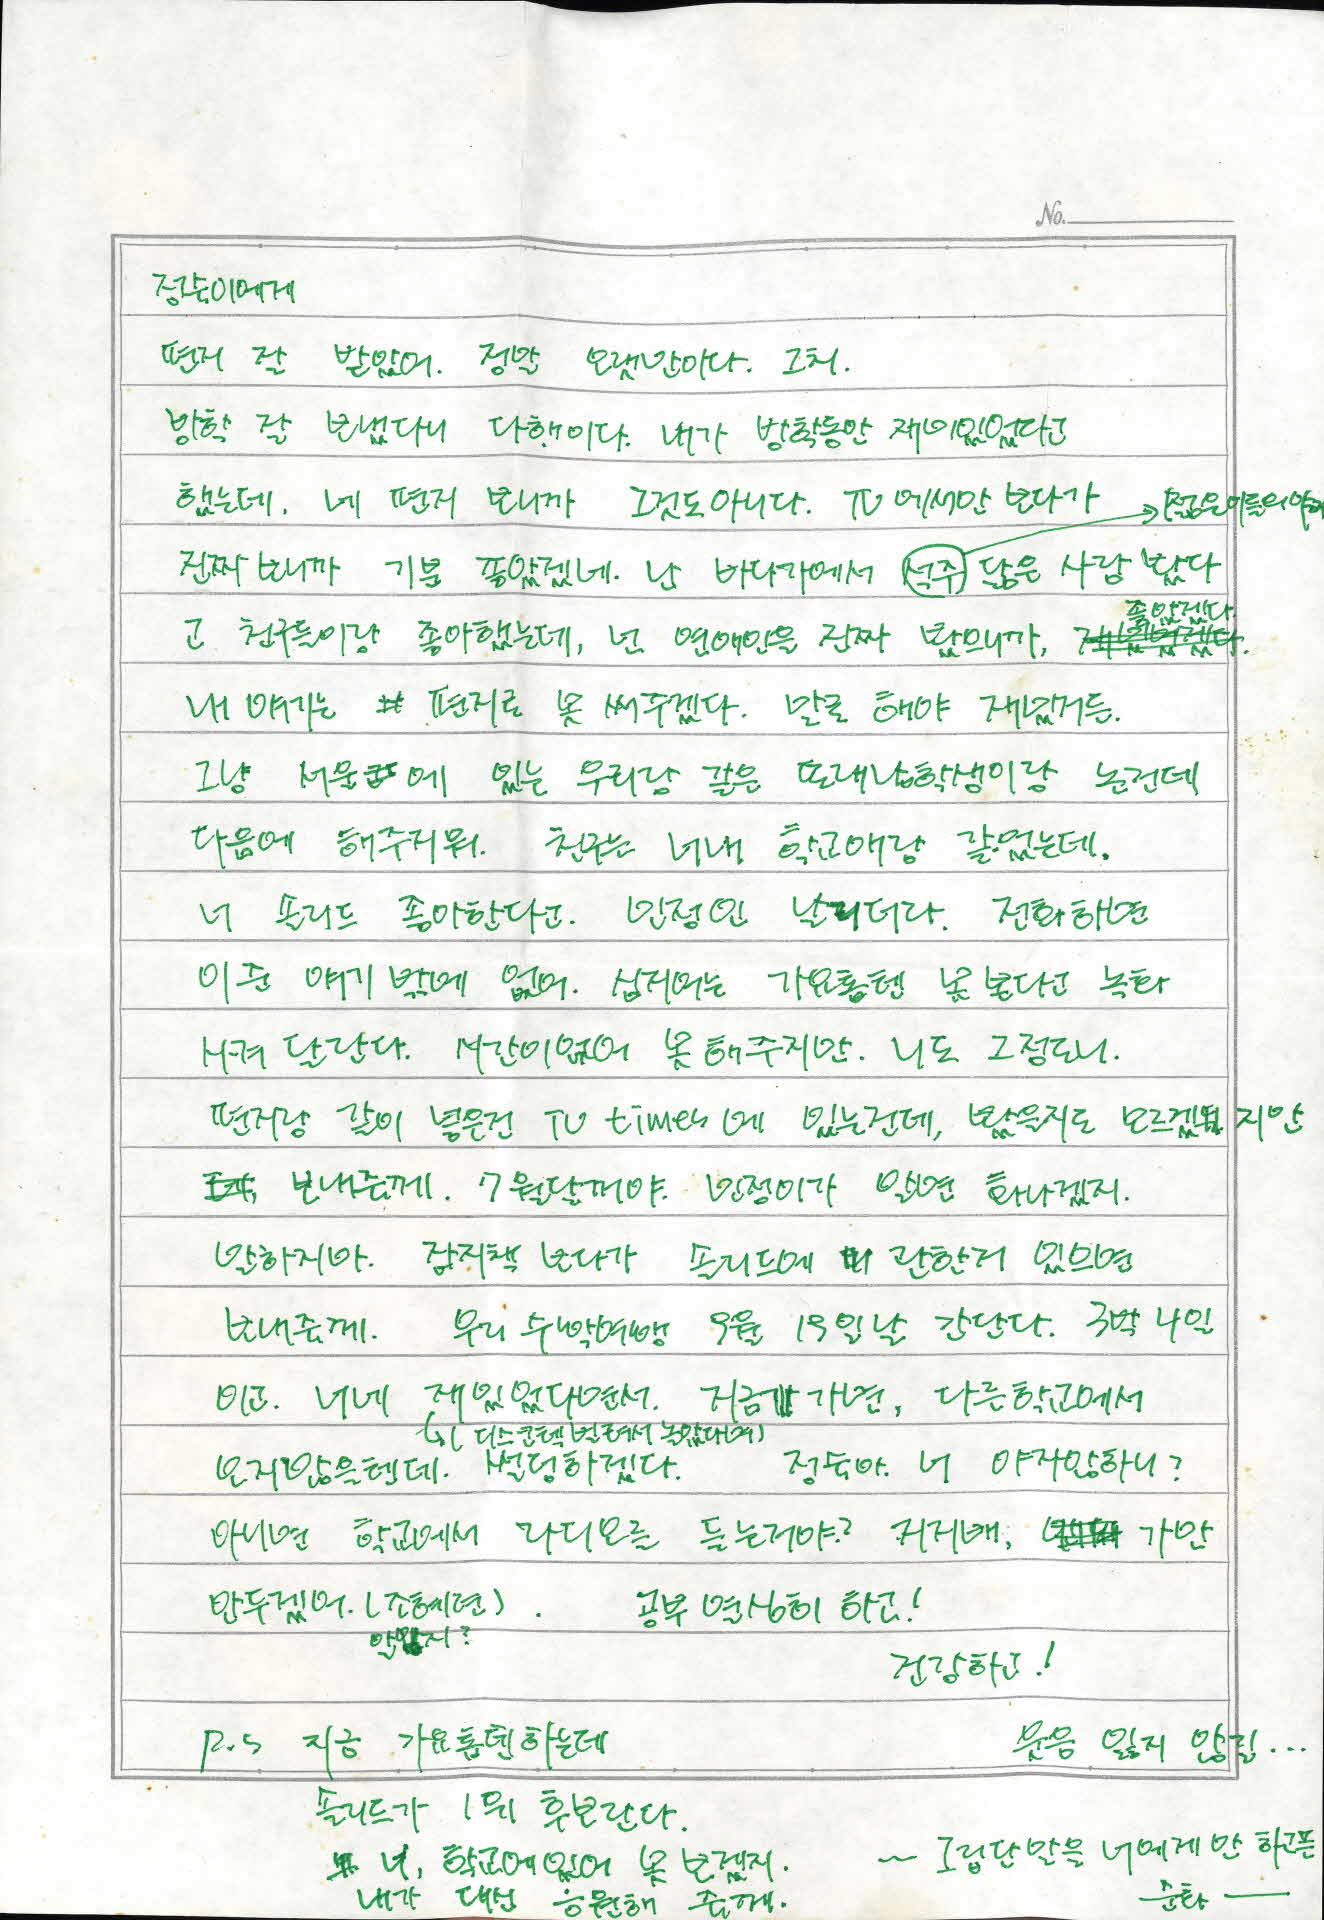 No.
정숙이에게
편지 잘 받았어. 정말 오랫만이다. 그치.
방학 잘 보냈다니 다행이다. 내가 방학동안 재미있었다고
했는데, 네 편지 보니까 그것도 아니다. TV에서만 보다가
진짜 보니까 기분 좋았겠네. 난 바다가에서 석주 닮은 사람 봤다
→ (젊은이들의
고 친구들이랑 좋아했는데, 넌 연예인을 진짜 봤으니까,
좋았겠다.
내 얘기는 편지로 못 써주겠다. 말로 해야 재밌거든.
그냥 서울에 있는 우리랑 같은 또래남학생이랑 논건데
다음에 해주지뭐. 친구는 너내 학교애랑 갈었는데.
너 솔리드 좋아한다고. 민정인 날리더라. 전화하면
이준 얘기 밖에 없어. 심지어는 가요톱텐 못 본다고 녹화
시켜 달란다. 시간이없어 못해주지만. 니도 그정도니.
편지랑 같이 넣은건 TV times에 있는건데, 봤을지도 모르겠지만
보내줄께. 7월달꺼야. 민정이가 알면 화나겠지.
말하지마. 잡지책 보다가 솔리드에 관한거 있으면
보내줄께. 우리 수학여행 9월 19일날 간단다. 3박 4일
이고. 너네 재밌었다면서. 지금 가면, 다른학교에서
(디스코텍 빌려서 놀았대며)
오지않을텐데. 썰렁하겠다. 정숙아. 너 야자안하니?
아니면 학교에서 라디오를 듣는거야? 귀지배, 가만
안두겠어. (조혜련)
안웃기지?
공부 열심히 하고!
건강하고!
P.S 지금 가요톱텐하는데
웃음 잃지 않길...
솔리드가 1위 후보란다.
너, 학교에있어 못 보겠지.
내가 대신 응원해 줄께.
~ 그립단 말을 너에게만 하고픈
순화 —